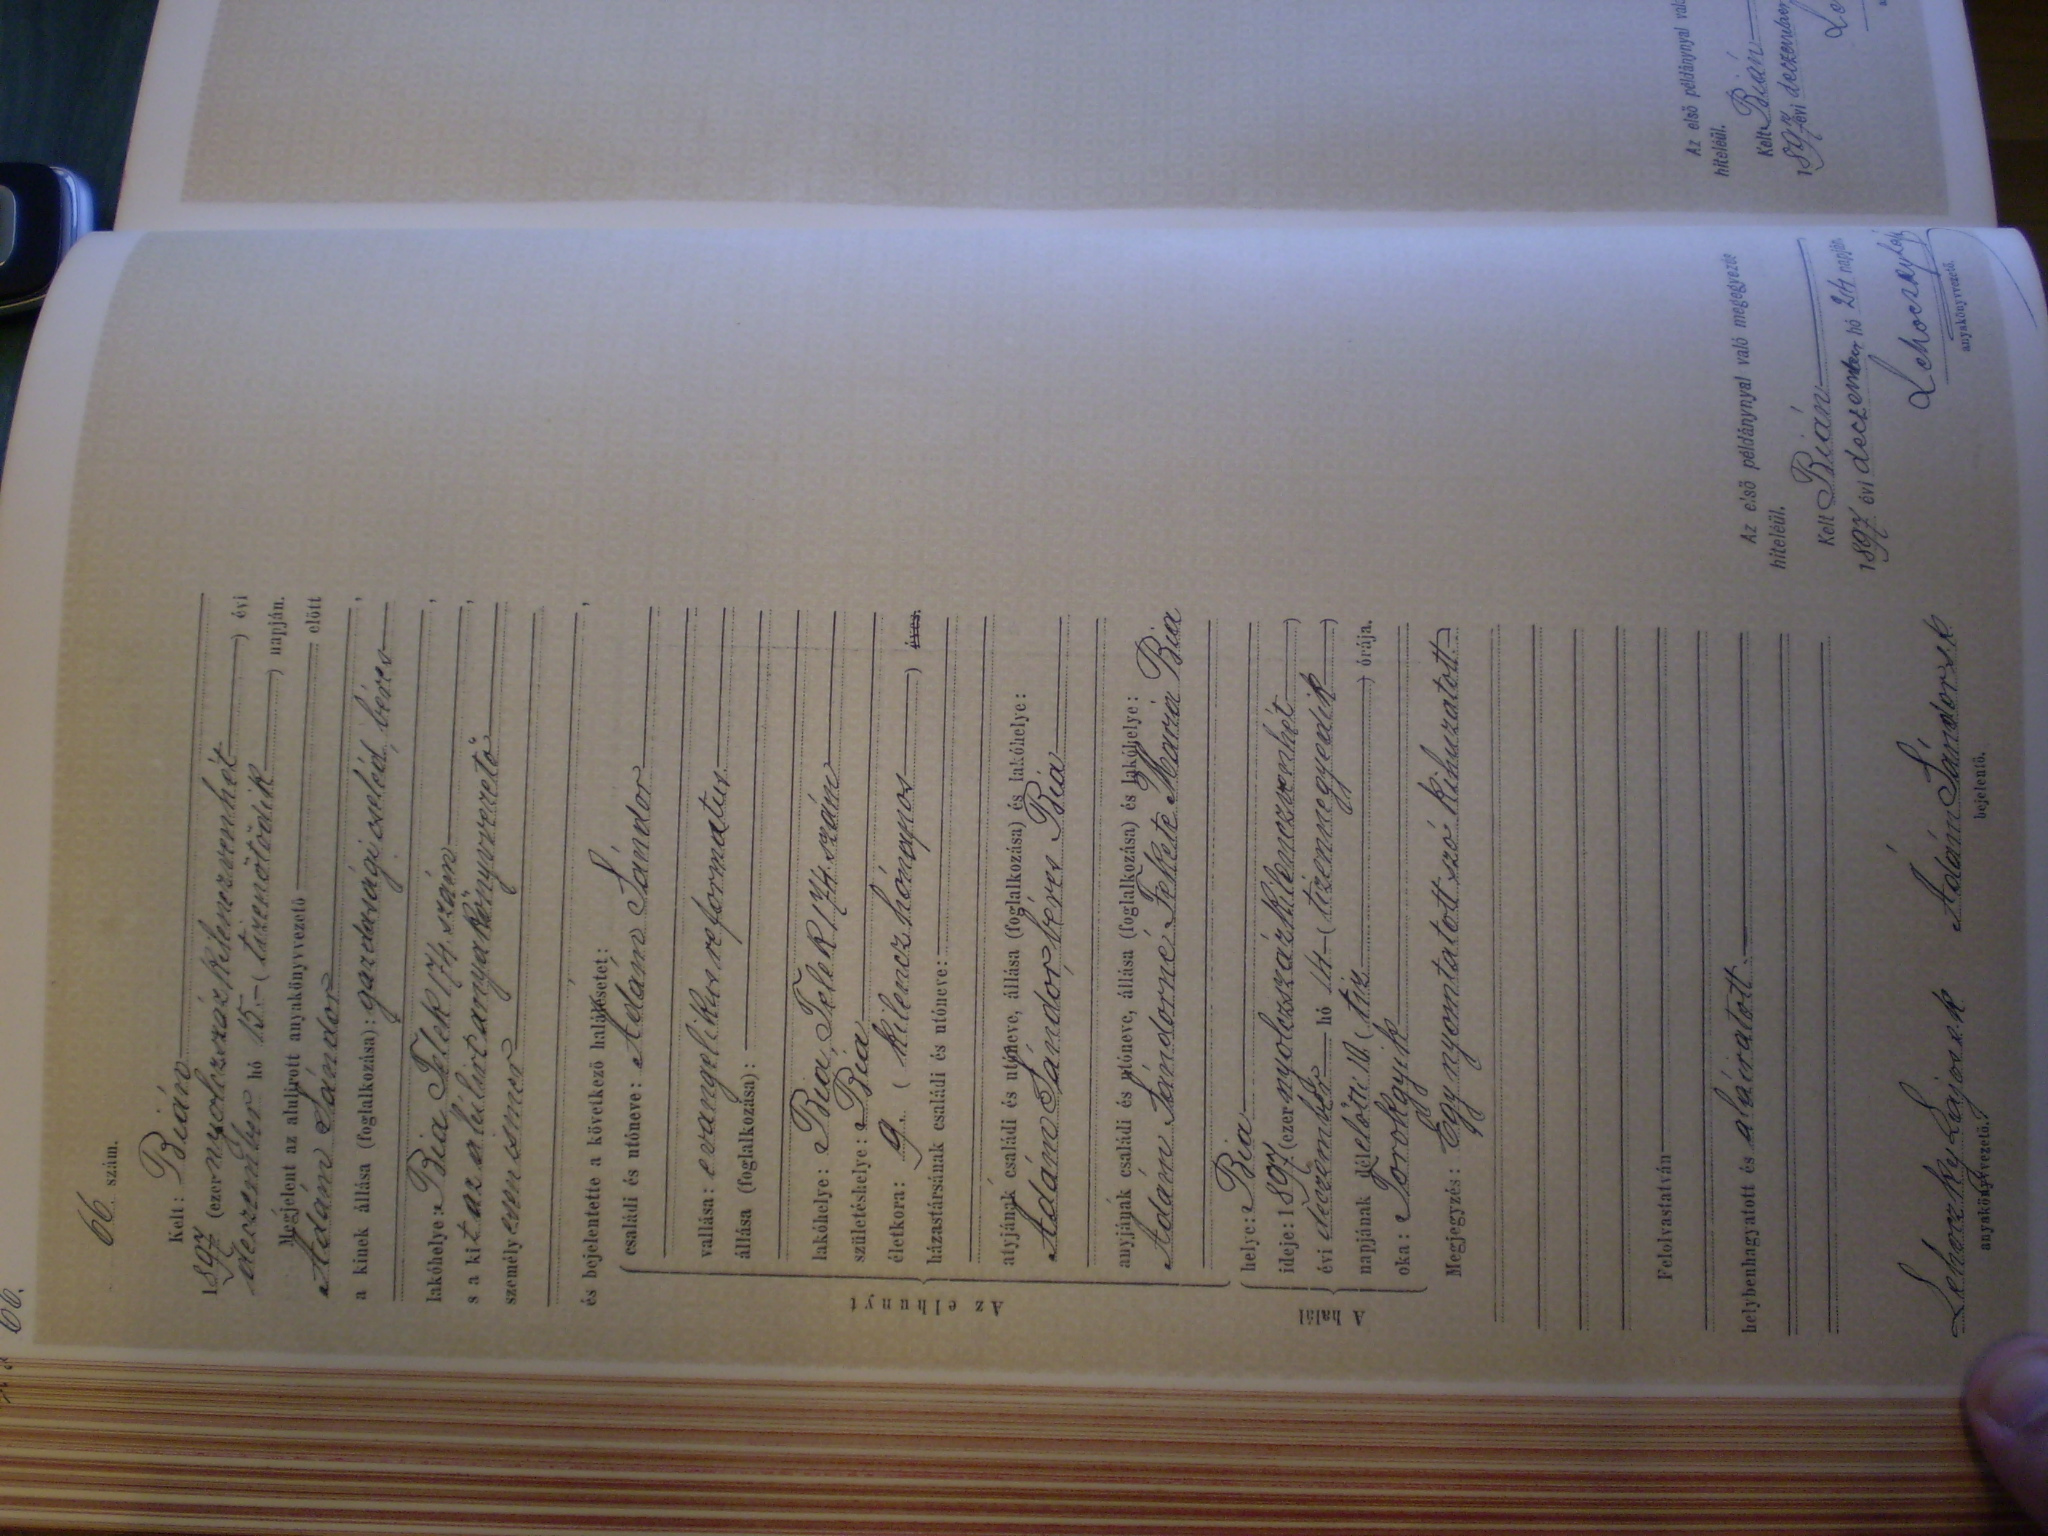 66.
66. szám.
Kelt: Bián
1897 (ezernyolczszázkilenczvenhét) évi
deczember hó 15.- (tizenötödik) napján.
Megjelent az alulírott anyakönyvvezető előtt
Ádám Sándor
a kinek állása (foglalkozása): gazdasági cseléd, béres,
lakóhelye: Bia Telek 174. szám,
s a kit az alúlírt anyakönyvvezető,
személyesen ismer
és bejelentette a következő halálesetet:
Az elhunyt
családi és utóneve: Ádám Sándor
vallása: evangelikus reformatus
állása (foglalkozása):
lakóhelye: Bia, Telek 174. szám
születéshelye: Bia
életkora: 9. (kilencz hónapos) éves.
házastársának családi és utóneve:
atyjának családi és utóneve, állása (foglalkozása) és lakóhelye:
Ádám Sándor béres Bia
anyjának családi és utóneve, állása (foglalkozása) és lakóhelye:
Ádám Sándorné Fekete Mária Bia
A halál
helye: Bia
ideje: 1897 (ezernyolczszázkilenczvenhét)
évi deczember hó 14- (tizennegyedik)
napjának délelőtti 10. (tiz) órája.
oka: Torokgyík
Megjegyzés: Egy nyomtatott szó kihuzatott
Felolvastatván
helybenhagyatott és aláiratott.
Lehoczky Lajos s.k.
anyakönyvvezető.
Ádám Sándor s.k.
bejelentő.
Az első példánynyal való megegyezés
hiteléül.
Kelt Bián
1897 évi deczember hó 24 napján
Lehoczky Lajos
anyakönyvvezető.
Az első példánynyal való
hiteléül.
Kelt Bián
1897 évi deczember